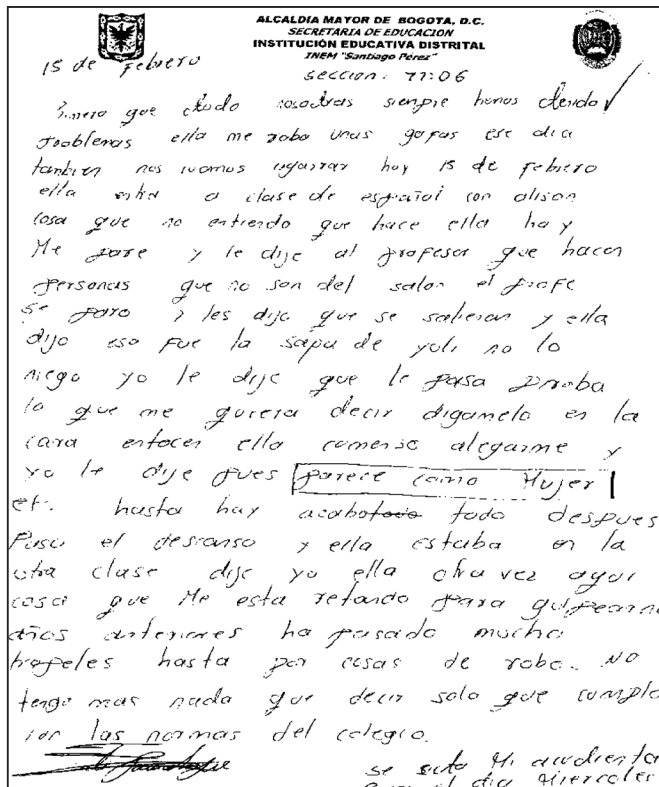 ALCALDIA MAYOR DE BOGOTA, D.C.
SECRETARIA DE EDUCACION
INSTITUCIÓN EDUCATIVA DISTRITAL
INEM "Santiago Pérez"
15 de Febrero
seccion: 11:06
que todo nosotras siempre hemos tenido
problemas ella me robo unas gafas ese dia
tambien nos ivamos agarrar hoy 15 de febrero
ella entra a clase de español con alison
cosa que no entiendo que hace ella hay
Me pare y le dije al profesor que hacen
personas que no son del salon el profe
se paro y les dijo que se salieran y ella
dijo eso fue la sapa de yuli no lo
niego yo le dije que le pasa
lo que me quiera decir digamelo en la
cara ella comenso alegarme y
yo le dije pues parece como Mujer
hasta hay acabo todo despues
Paso el descanso y ella estaba en la
otra clase dije yo ella otra vez aqui
cosa que Me esta retando para
años anteriores ha pasado mucho
hasta por cosas de robo. NO
tengo mas nada que decir solo que cumplo
con las normas del colegio.
se Mi
el dia Miercoles